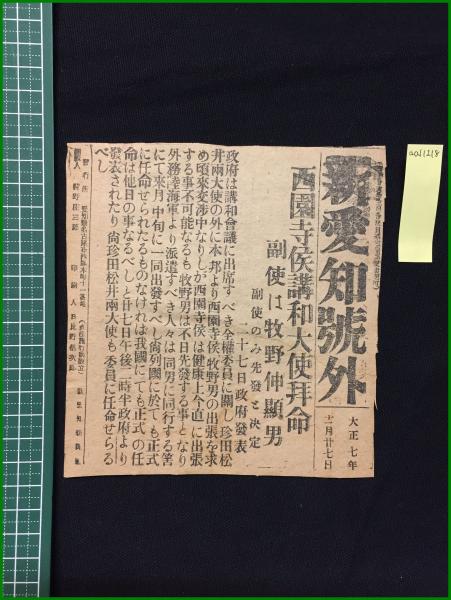 新愛知號外
大正七年
十一月廿七日
西園寺侯講和大使拜命
副使は牧野伸顯男
副使のみ先發と決定
二十七日政府發表
政府は講和會議に出席すべき全權委員に關し珍田松
井兩大使の外に本邦より西園寺侯、牧野男の出張を求
め頃來交渉中なりしが西園寺侯は健康上今直に出張
する事不可能なるも牧野男は不日先發する事となり
外務陸海軍より派遣すべき人々は同男に同行する筈
にて來月中旬に一同出發すべし尚列國に於ても正式
に任命せられたるものなければ我國にても正式の任
命は他日の事なるべしと廿七日午後二時半政府より
發表されたり尚珍田松井兩大使も委員に任命せらる
べし
aa11218